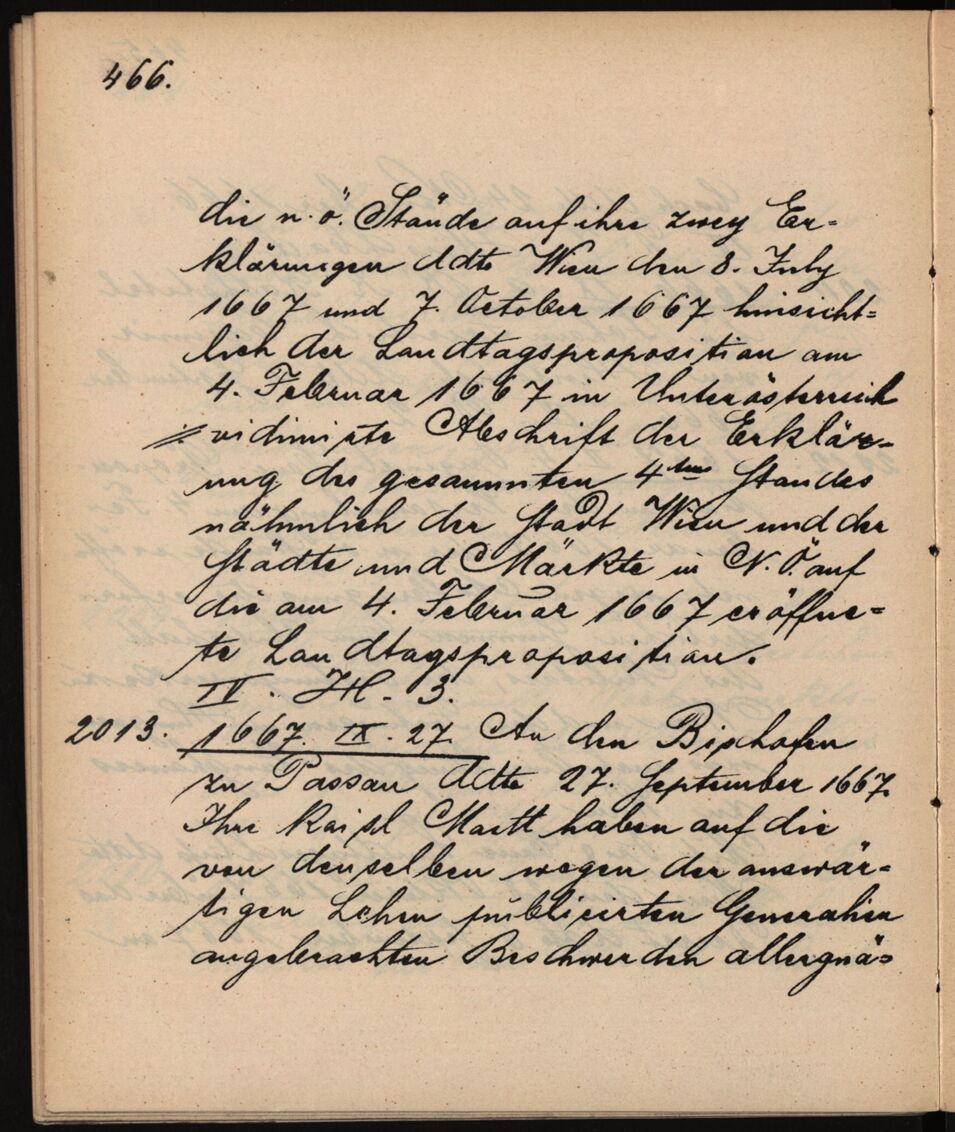 466.
die n. ö. Stände auf ihre zwey Er=
klärungen ddto Wien den 8. July
1667 und 7. October 1667 hinsicht=
lich der Landtagsproposition am
4. Februar 1667 in Unterösterreich
vidimirte Abschrift der Erklär=
ung des gesammten 4ten Standes
nähmlich der Stadt Wien und der
Städte und Märkte in N. Ö. auf
die am 4. Februar 1667 eröffne=
te Landtagsproposition.
IV. H. 3.
2013. 1667. IX. 27. An den Bischofen
zu Passau ddto 27. September 1667.
Ihre Kaisl Maitt haben auf die
von denselben wegen der auswär=
tigen Lehen publicirten Generalien
angebrachten Beschwerden allergnä=